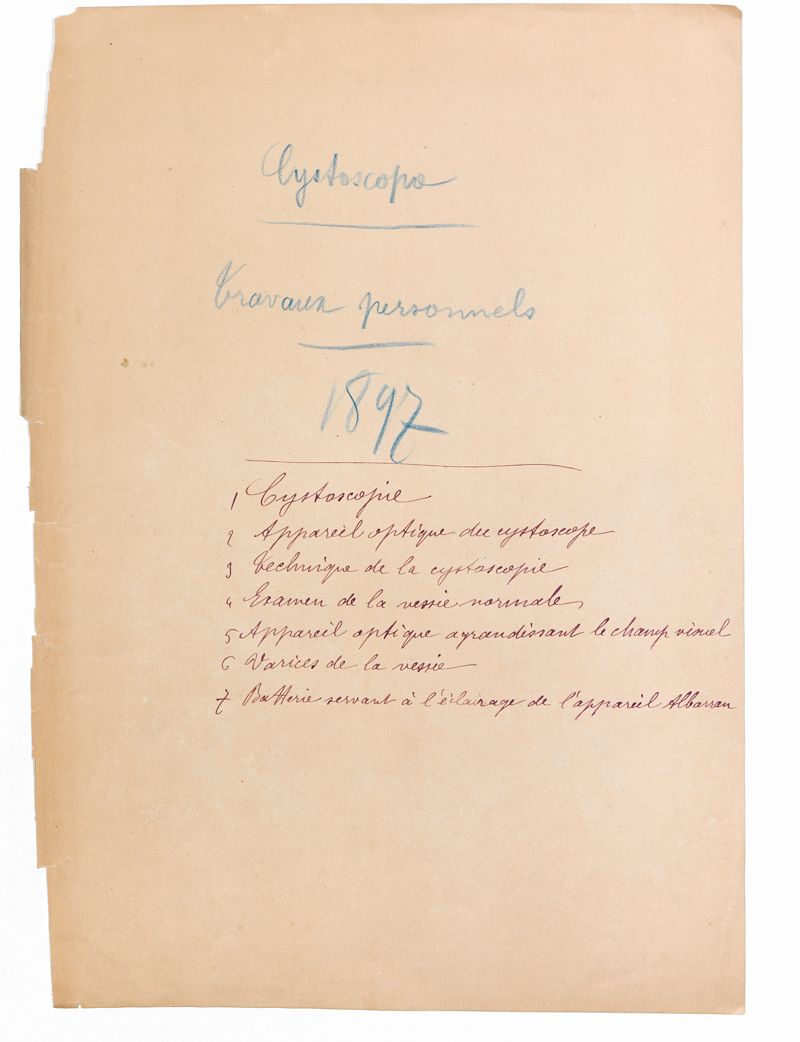 Cystoscope
Travaux personnels
1897
1 Cystoscopie
2 Appareil optique du cystoscope
3 Technique de la cystoscopie
4 Examen de la vessie normale
5 Appareil optique agrandissant le champ visuel
6 Varices de la vessie
7 Batterie servant à l'éclairage de l'appareil Albarran